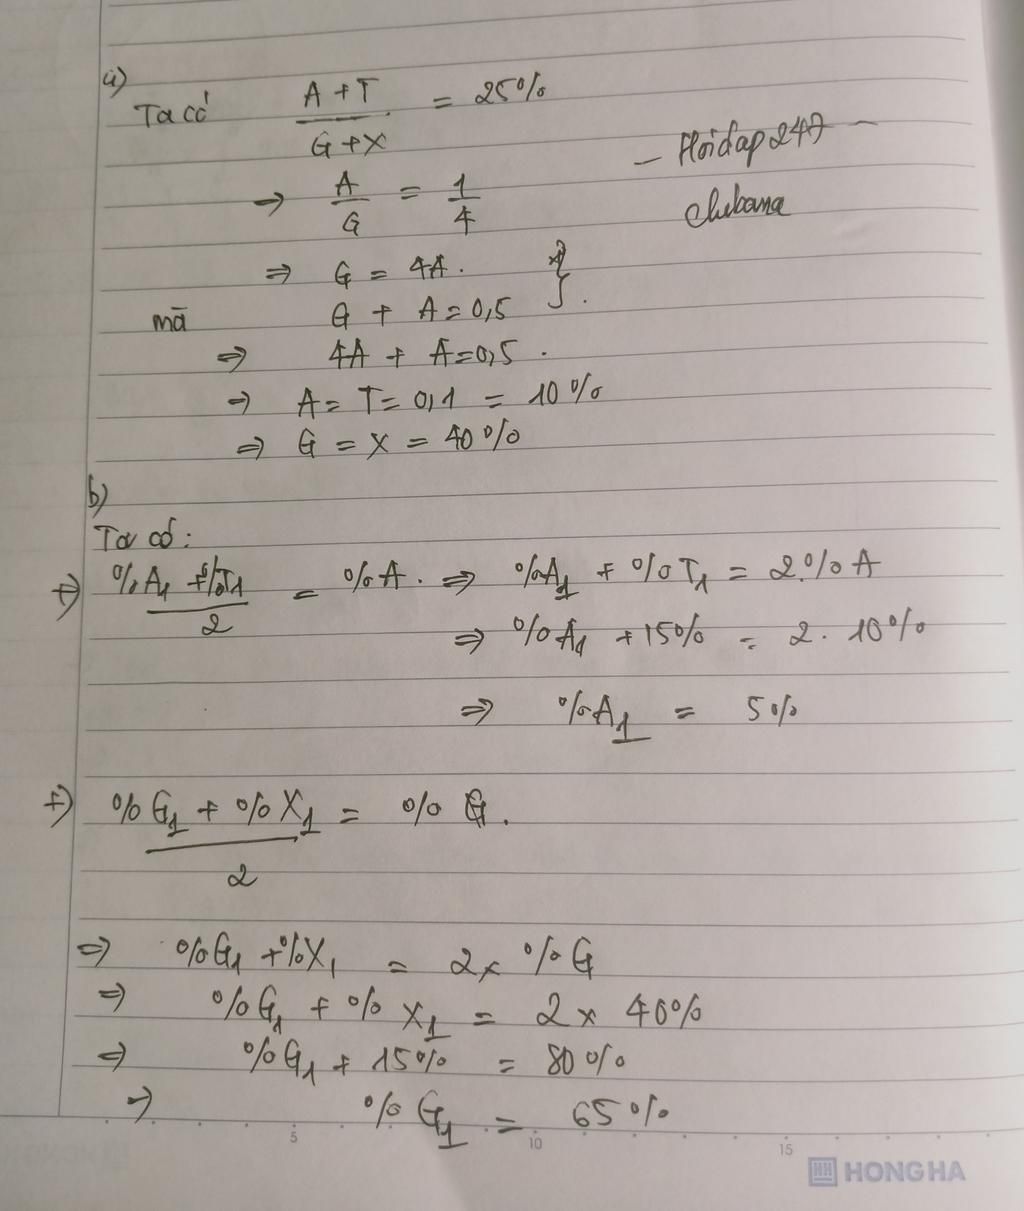 a)
Ta có A + T / G + X = 25%
- Hoidap247 -
⇒ A / G = 1 / 4
⇒ G = 4A.
mà G + A = 0,5 }.
⇒ 4A + A = 0,5.
⇒ A = T = 0,1 = 10%
⇒ G = X = 40%
b)
Ta có:
+) %A1 + %T1 / 2 = %A. ⇒ %A1 + %T1 = 2.%A
⇒ %A1 + 15% = 2. 10%
⇒ %A1 = 5%
+) %G1 + %X1 / 2 = %G.
⇒ %G1 + %X1 = 2 x %G
⇒ %G1 + %X1 = 2 x 40%
⇒ %G1 + 15% = 80%
⇒ %G1 = 65%
5 10 15
HH HONG HA